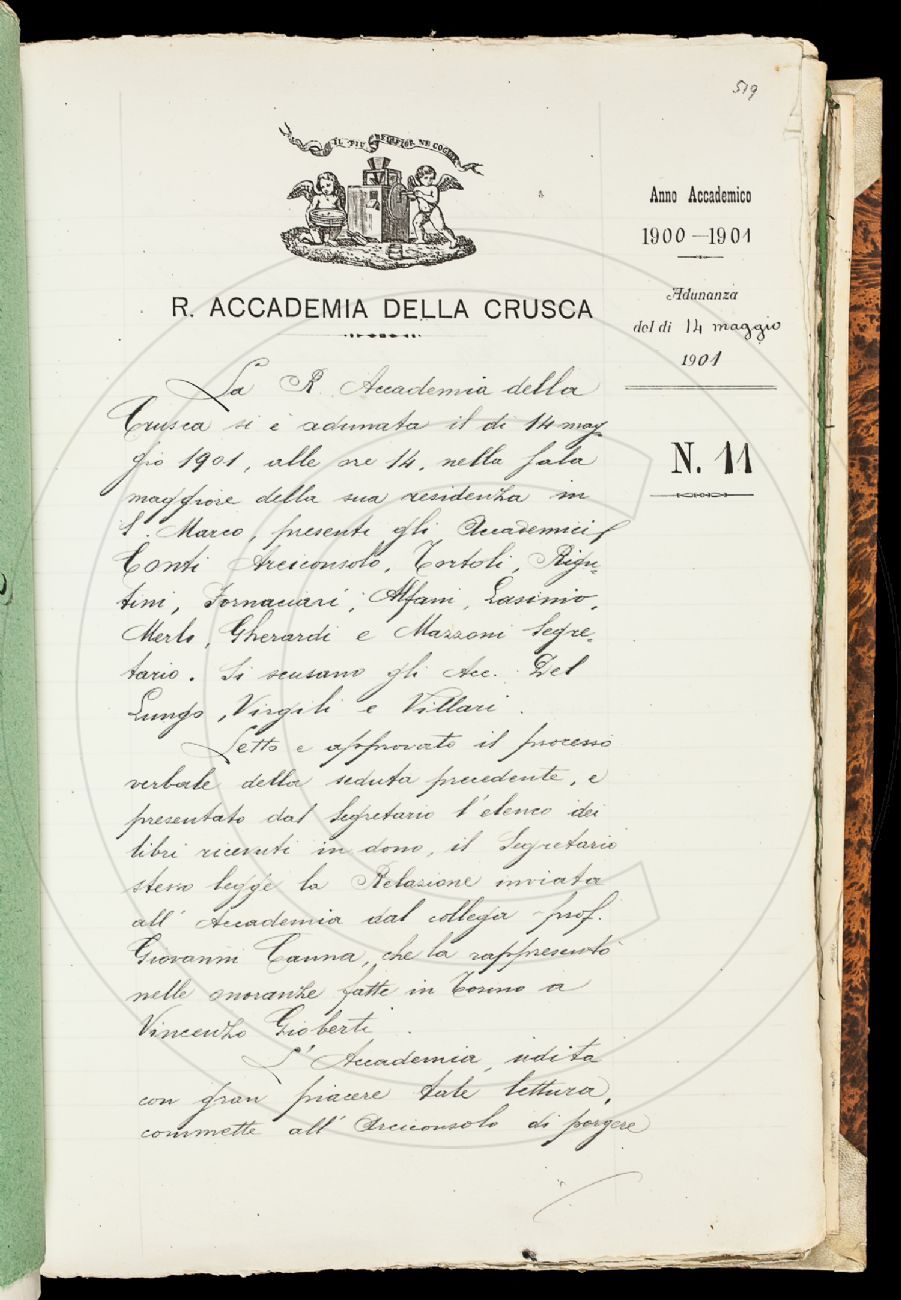 519
IL PIÙ BEL FIOR NE COGLIE
Anno Accademico
1900—1901
Adunanza
del dì 14 maggio
1901
N. 11
R. ACCADEMIA DELLA CRUSCA
La R. Accademia della
Crusca si è adunata il dì 14 mag
gio 1901, alle ore 14, nella sala
maggiore della sua residenza in
S. Marco, presenti gli Accademici
Conti Arciconsolo, Tortoli, Rigu-
tini, Fornaciari, Alfani, Lasinio,
Merlo, Gherardi e Mazzoni Segre-
tario. Si scusano gli Acc. Del
Lungo, Virgili e Villari.
Letto e approvato il processo
verbale della seduta precedente, e
presentato dal Segretario l'elenco dei
libri ricevuti in dono, il Segretario
stesso legge la Relazione inviata
all'Accademia dal collega prof.
Giovanni Canna, che la rappresentò
nelle onoranze fatte in Torino a
Vincenzo Gioberti.
L'Accademia, udita
con gran piacere tale lettura,
commette all'Arciconsolo di porgere